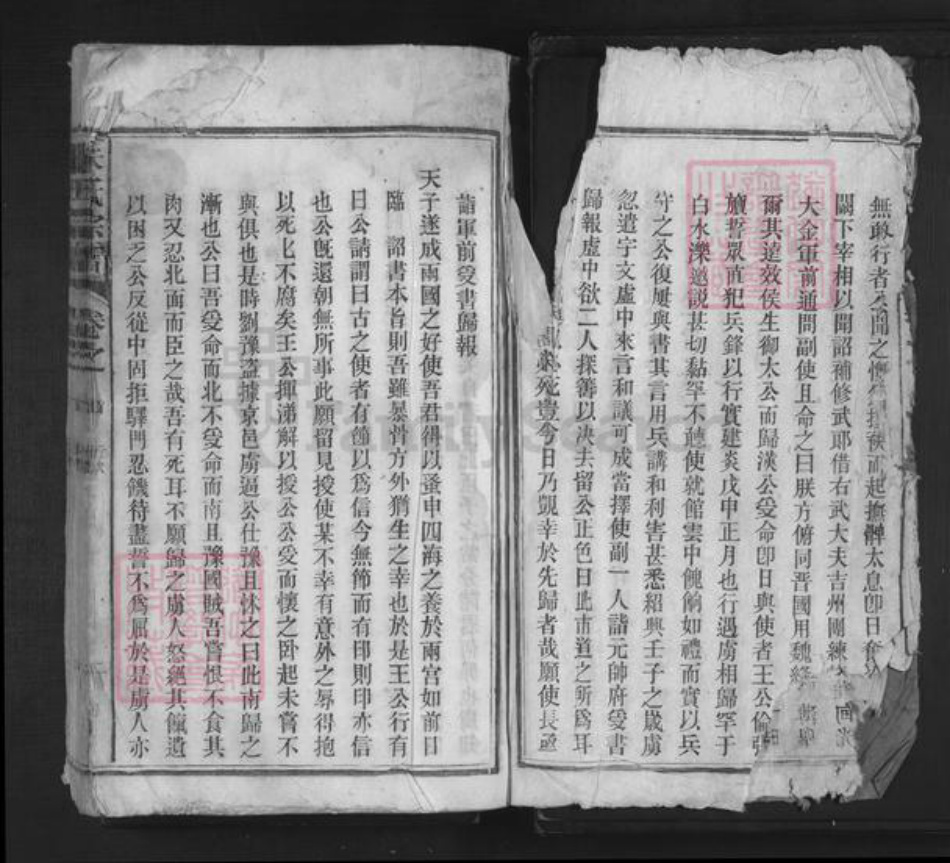 無敢行者公聞之
而起撫髀太息卽日奮
闕下宰相以聞詔補修武郞借右武大夫吉州團練
大金軍前通問副使且命之曰朕方俯同晉國用魏絳
爾其遠效侯生御太公而歸漢公受命卽日與使者王公倫張
旜誓眾直犯兵鋒以行實建炎戊申正月也行遇虜相歸罕于
白水濼邀說甚切黏罕不聽使就館雲中餽餉如禮而實以兵
守之公復屢與書其言用兵講和利害甚悉紹興壬子之歲虜
忽遣宇文虛中來言和議可成當擇使副一人詣元帥府受書
歸報虛中欲二人探籌以決去留公正色曰此市道之所爲耳
死豈今日乃覬幸於先歸者哉願使長亟
詣軍前受書歸報
天子遂成兩國之好使吾君得以蚤申四海之養於兩宮如前日
臨 詔書本旨則吾雖暴骨方外猶生之幸也於是王公行有
日公請謂曰古之使者有節以爲信今無節而有印則印亦信
也公旣還朝無所事此願留見授使某不幸有意外之辱得抱
以死死不腐矣王公揮涕解以授公公受而懷之卧起未嘗不
與俱也是時劉豫盜據京邑虜逼公仕豫且怵之曰此南歸之
漸也公曰吾受命而北不受命而南且豫國賊吾嘗恨不食其
肉又忍北面而臣之哉吾有死耳不願歸之虜人怒絕其餼遺
以困之公反從中固拒驛門忍饑待盡誓不爲屈於是虜人亦
氏宗譜 卷之
FamilySearch